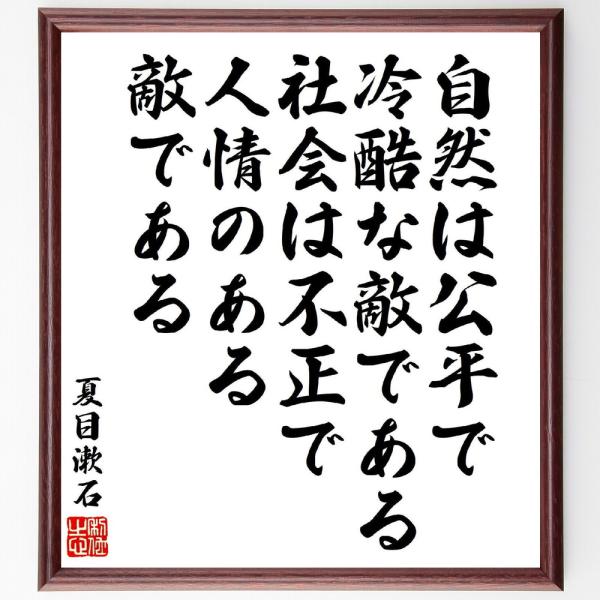 自然は公平で
冷酷な敵である
社会は不正で
人情のある
敵である
夏目漱石